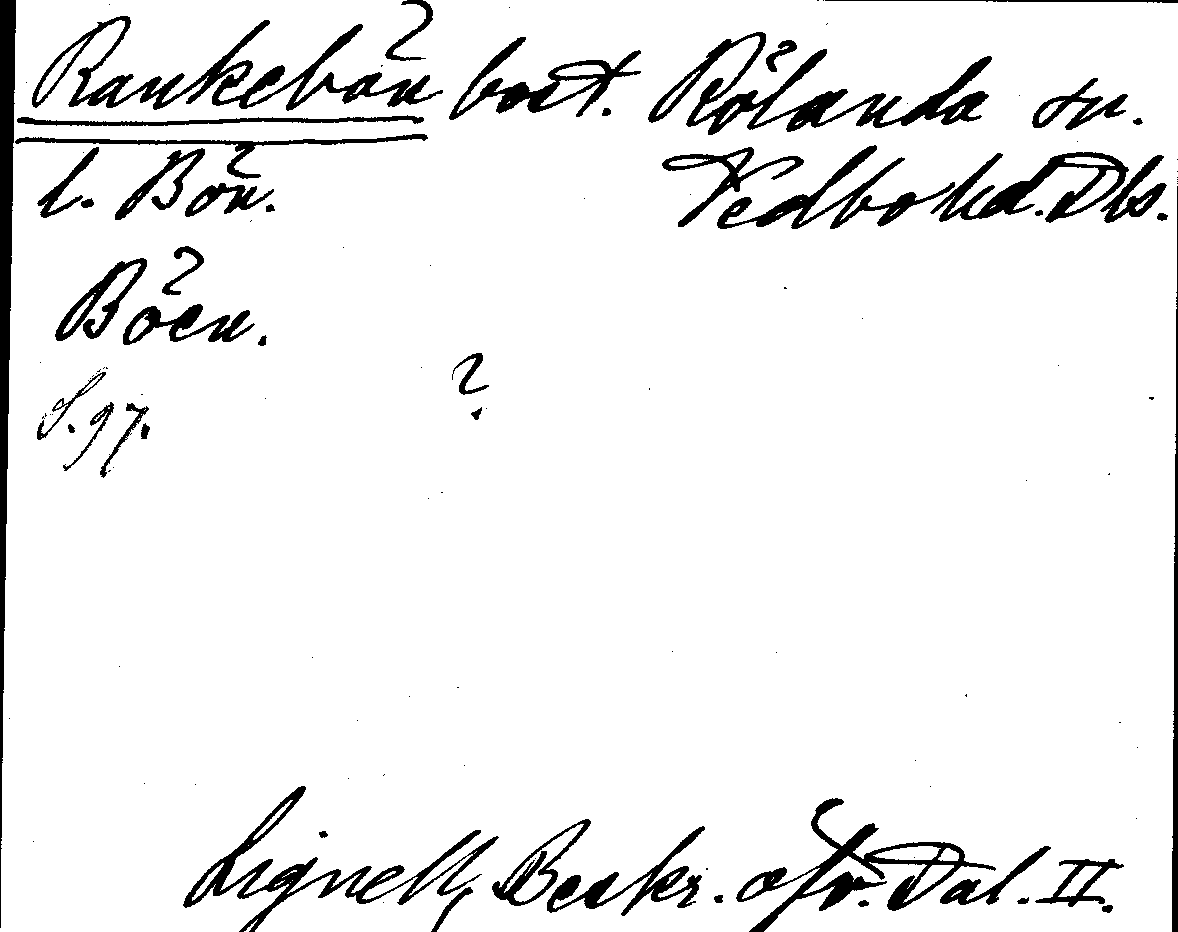 Rankebön bost. Rölanda sn.
l. Bön. Vedbo hd. Dls.
Böen.
S. 97. ?
Lignell, Beskr. öfv. Dal. II.